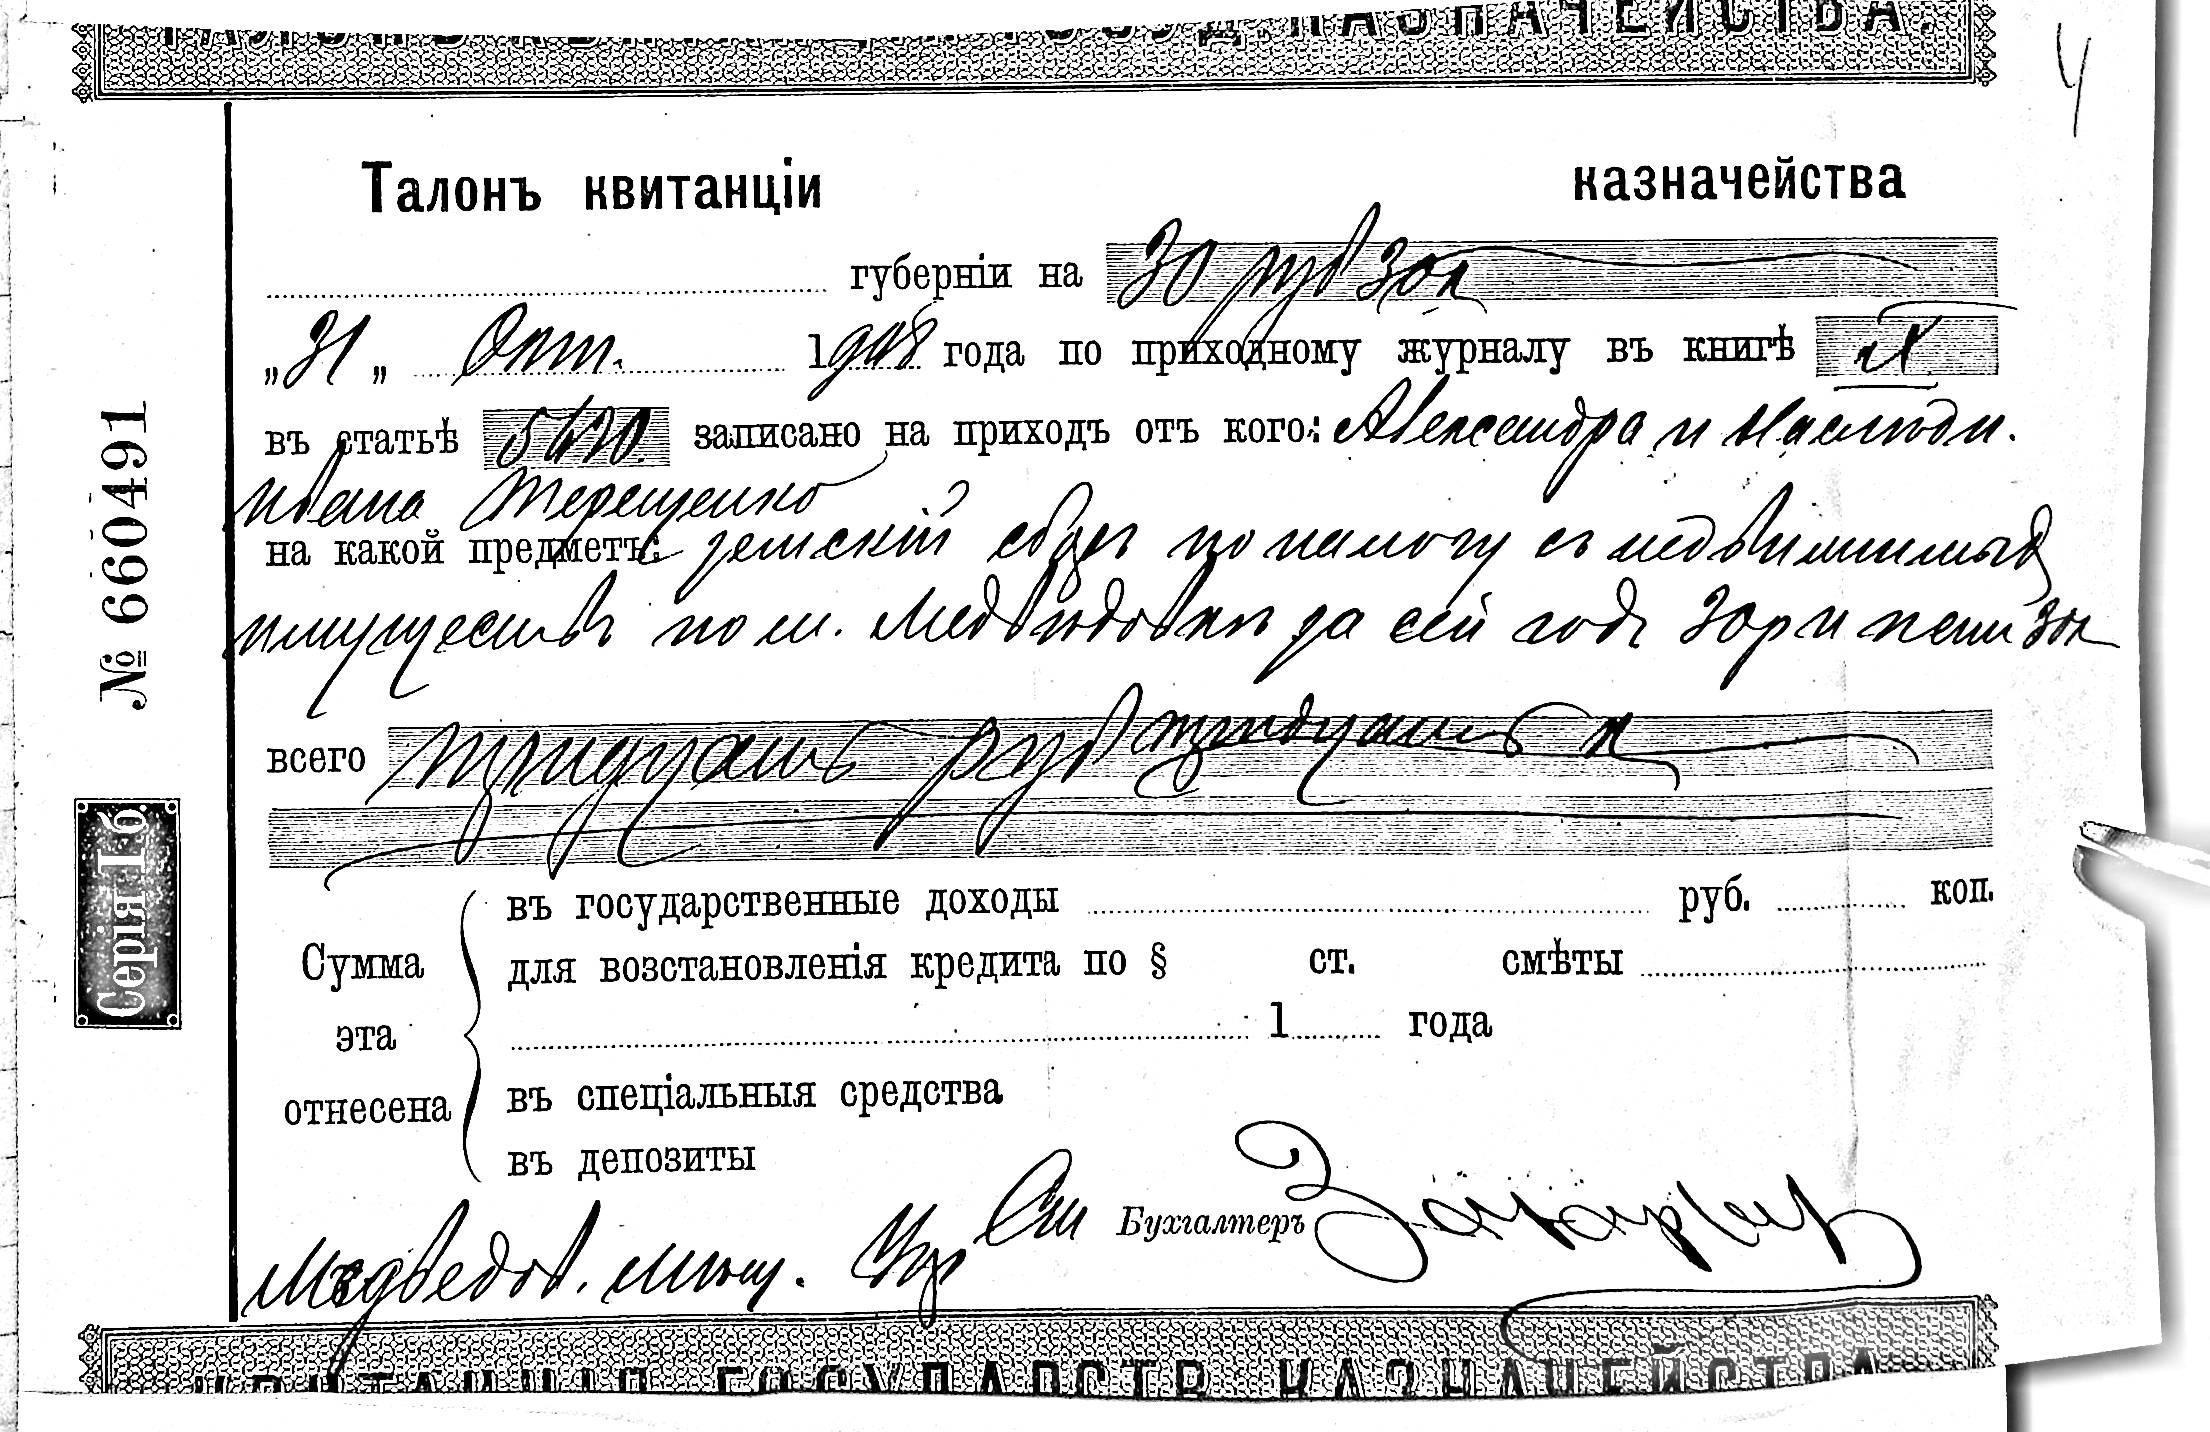 ТАЛОНЪ КВИТАНЦІИ ГОСУД. КАЗНАЧЕЙСТВА.
4
Талонъ квитанціи казначейства
губерніи на 30 руб 30 к
„31„ Окт. 1908 года по приходному журналу въ книгѣ
въ статьѣ 5620 записано на приходъ отъ кого: Александра и Наслѣдн.
Ивана Терещенко
на какой предметъ: земскій сборъ по налогу съ недвижимыхъ
имуществъ по м. Медвѣдовкѣ за сей годъ 30 р и пени 30 к
всего тридцать руб тридцать к
Сумма эта отнесена
въ государственные доходы руб. коп.
для возстановленія кредита по § ст. смѣты
1 года
въ спеціальныя средства
въ депозиты
Бухгалтеръ
Медведов. мѣщ. Упр
№ 660491
Серія I б
КВИТАНЦІЯ ГОСУДАРСТВ. КАЗНАЧЕЙСТВА